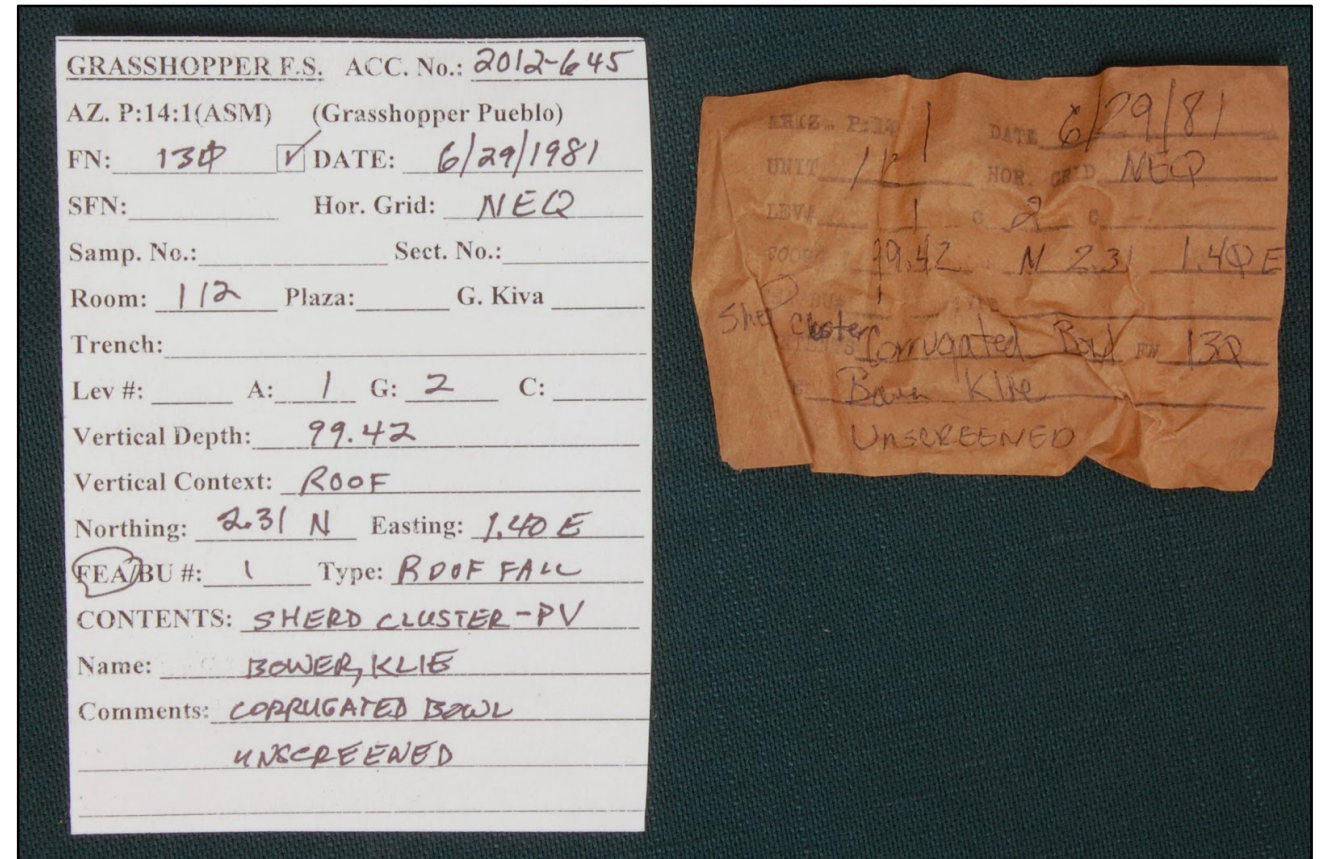 GRASSHOPPER F.S. ACC. No.: 2012-645
AZ. P:14:1(ASM) (Grasshopper Pueblo)
FN: 130 ✓ DATE: 6/29/1981
SFN: Hor. Grid: NEQ
Samp. No.: Sect. No.:
Room: 112 Plaza: G. Kiva
Trench:
Lev #: A: 1 G: 2 C:
Vertical Depth: 99.42
Vertical Context: ROOF
Northing: 2.31 N Easting: 1.40 E
FEA/BU #: 1 Type: ROOF FALL
CONTENTS: SHERD CLUSTER-PV
Name: BOWER, KLIE
Comments: CORRUGATED BOWL
UNSCREENED
ARIZ. P:14 1 DATE 6/29/81
UNIT HOR. GRID NEQ
LEV. 1 G 2 C
99.42 N 2.31 1.40 E
Cluster Corrugated Bowl FN 130
Klie
UNSCREENED